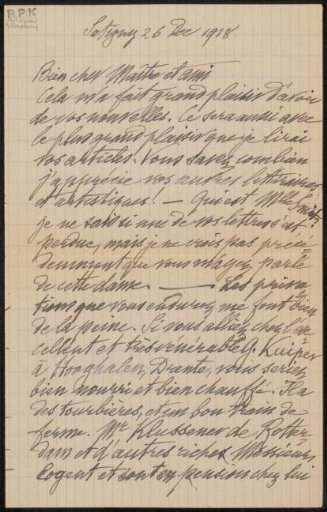 R.P.K
Satigny 26 Dec 1918
Bien cher Maître et ami
Cela m'a fait grand plaisir d'avoir
de vos nouvelles. Ce sera aussi avec
le plus grand plaisir que je lirai
vos articles. Vous savez combien
j'apprécie vos œuvres littéraires
et artistiques! — Qui est Mlle
je ne sais si une de vos lettres s'est
perdue, mais je ne crois pas précé-
demment que vous m'ayez parlé
de cette dame. — Les priva-
tions que vous endurez me font bien
de la peine. Si vous alliez chez l'ex-
cellent et très vénérable G. Kuiper
à Hooghalen, Drente, vous seriez
bien nourri et bien chauffé. Il a
des tourbières, et un bon train de
ferme. Mr Klussener de Rotter-
dam et d'autres riches Messieurs
logent et sont en pension chez lui